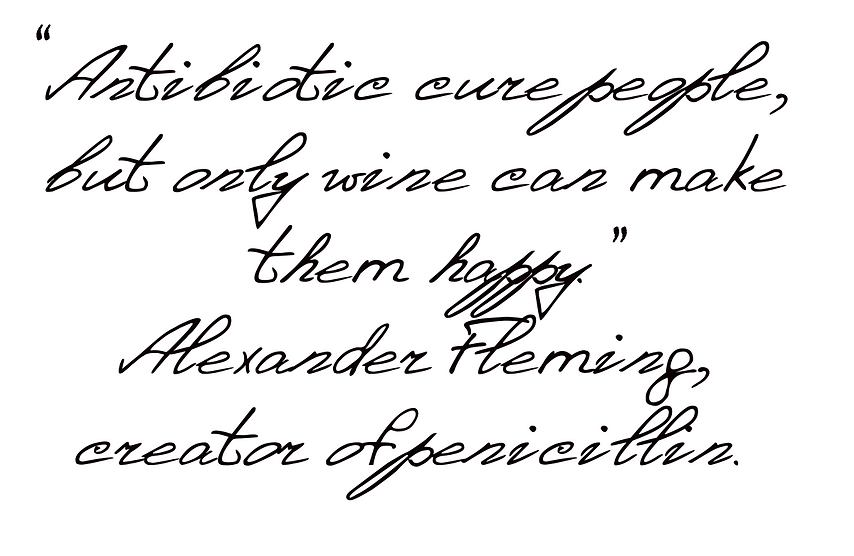 “Antibiotic cure people,
but only wine can make
them happy.”
Alexander Fleming,
creator of penicillin.